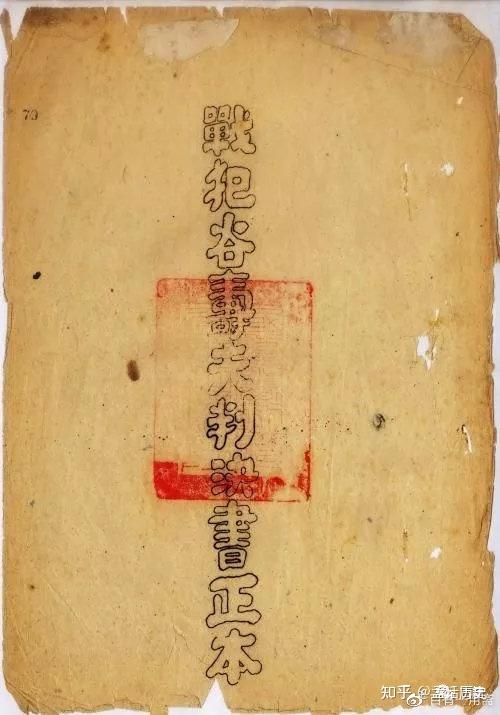 79
戰犯谷壽夫判決書正本
知乎